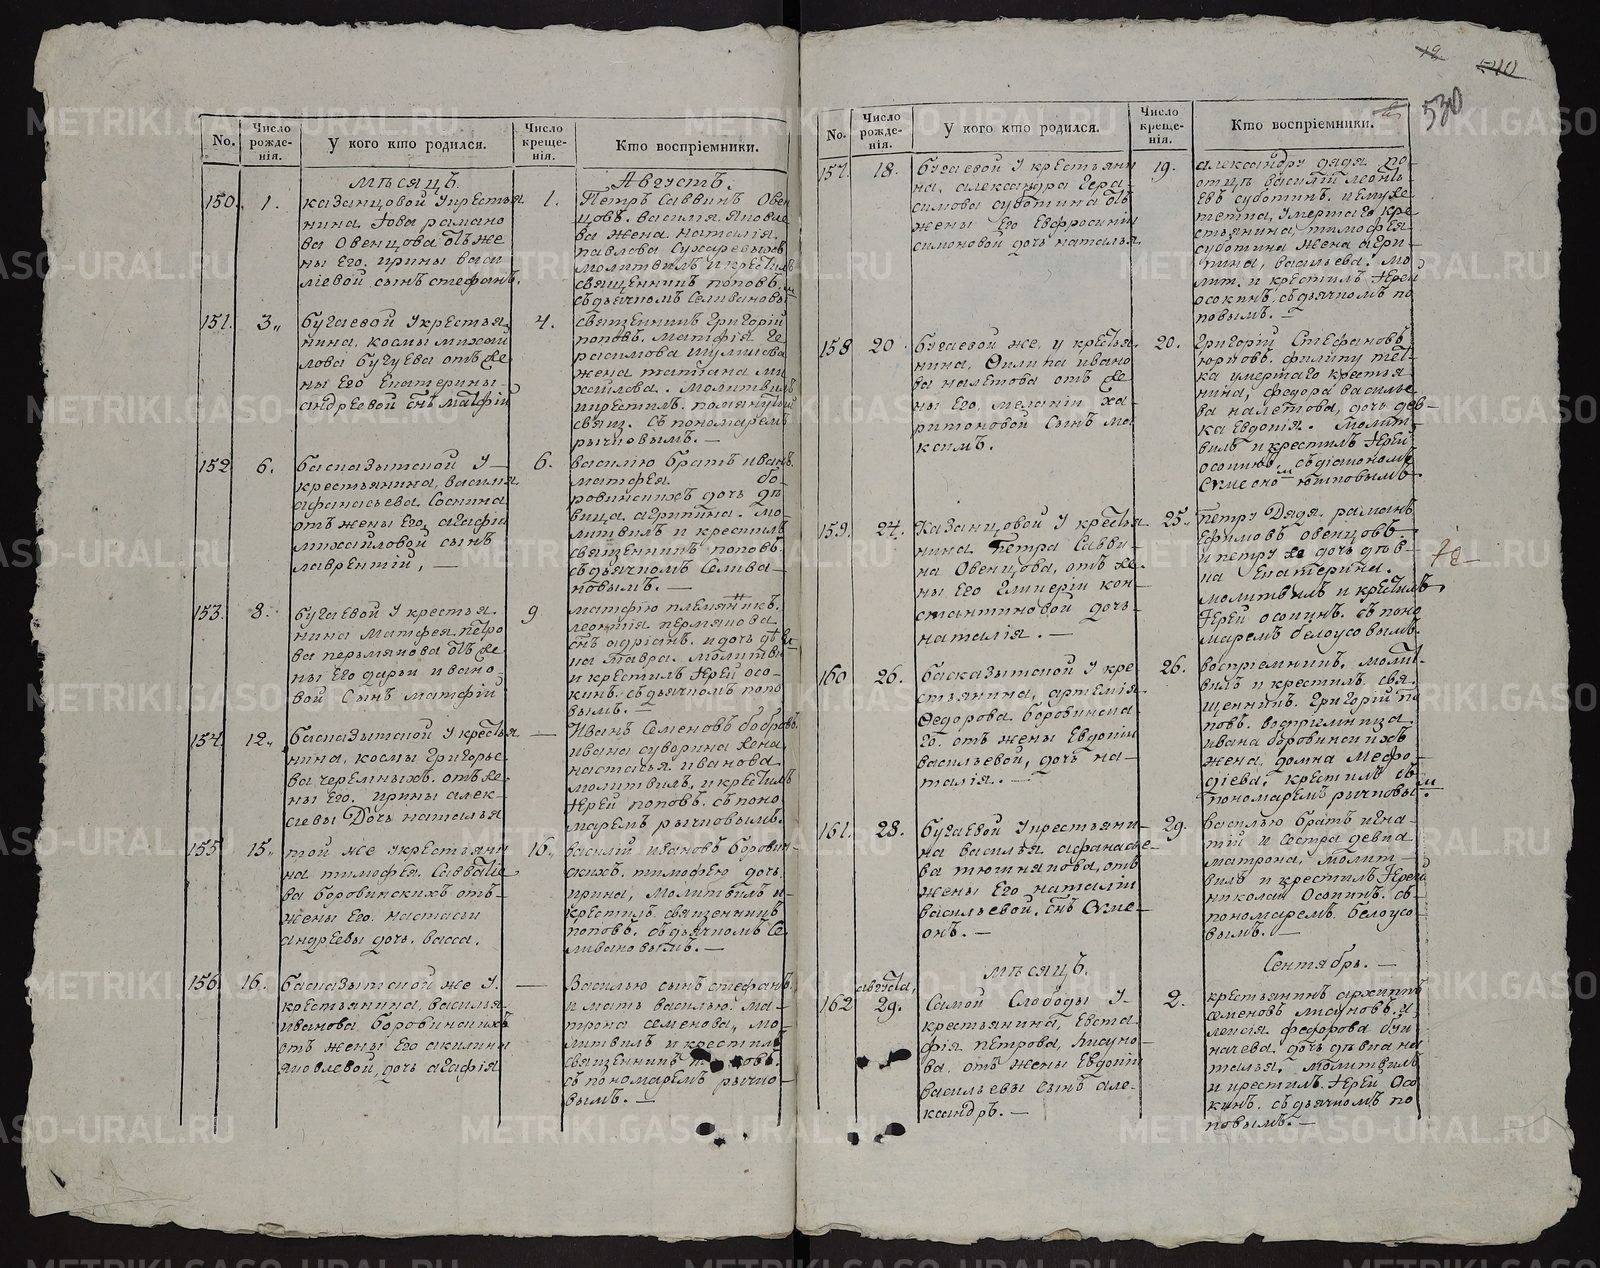 No.
Число рожде-нія.
У кого кто родился.
Число креще-нія.
Кто воспріемники.
мѣсяцъ
Августъ.
150.
1.
казанцовой у кресть
янина Іова рамано
ва Овенцова отъ же
ны Его. ирины васи
лієвой сынъ стефанъ.
1.
Петръ Саввинъ Овен
цовъ. василія яковле
ва жена наталія.
павлова
молитвилъ и крестилъ
священникъ поповъ.
съ дьячкомъ Селивановы
151.
3
бугаевой у крестья
нина. космы михаи
лова бугуева отъ же
ны Его Екатерины
андреевой снъ матфій
4.
священникъ григорій
поповъ. матфія ге
расимова
жена татиана ми
хаилова. молитвилъ
и крестилъ. помянутый
свящ. съ пономаремъ
рычковымъ. —
152
6.
у
крестьянина, василія
афанасьева Соснина
отъ жены Его, агафіи
михайловой сынъ
лаврентій, —
6.
василію братъ иванъ.
матфея. бо-
ровинскихъ дочь дѣ
вица агрипина. мо-
литвилъ и крестилъ
священникъ поповъ.
съ дьячкомъ Селива-
новымъ. —
153.
8.
бугаевой у крестья
нина матфея петро
ва пермянова отъ же
ны Его дарьи ивано
вой Сынъ матфій
9
матфію племянникъ.
леонтія пермянова
снъ адріанъ. и дочь дѣв
молитв
и крестилъ Іерей осо-
кинъ. съ дьячкомъ попо
вымъ. —
154.
12
у кресть
янина, космы григорье
ва черемныхъ. отъ же
ны Его. ирины алек
сіевы Дочь наталья
—
Иванъ Семеновъ бобровъ.
ивана суворина жена
настасья иванова
молитвилъ, и крестилъ
Іерей поповъ. съ поно
маремъ рычковымъ.
155
15
той же у крестьяни
на тимофея Савватіе
ва боровинскихъ отъ
жены Его. настасіи
андреевы дочь. васса.
16.
василій ивановъ боровин
скихъ. тимофею дочь
ирина, молитвилъ и
крестилъ священникъ
поповъ. съ дьячкомъ Се
ливановымъ. —
156.
16.
же у
крестьянина, василія
иванова боровинскихъ
отъ жены Его акилины
яковлевой, дочь агафія
—
Василью сынъ стефанъ.
и мать василью. ма-
трона семенова, мо-
литвилъ и крестилъ
священникъ поповъ.
съ пономаремъ рычко-
вымъ. —
530
No.
Число рожде-нія.
У кого кто родился.
Число креще-нія.
Кто воспріемники.
157.
18.
бугаевой у крестьяни
на, александра гера-
симова суботина отъ
жены Его Евфросиніи
симоновой дочь наталья
19.
александру дядя по
отцѣ василій леонть
евъ суботинъ. и Ему же
тетка, умершаго кре
стьянина, тимофея
суботина жена агри-
пина, васильева. мо
лит. и крестилъ Іерей
осокинъ, съ дьячкомъ по
повымъ. —
158
20
бугаевой же, у крестья
нина, Филипа ивано
ва налетова отъ же
ны Его, меланіи ха-
ритоновой Сынъ ма
ксимъ.
20.
григорій Стефановъ
юртовъ. филипу тет
ка умершаго крестья
нина, федора василье
ва налетова, дочь дев
ка Евдокія. молит
вилъ и крестилъ Іерей
осокинъ. съ діакономъ
159.
24.
Казанцовой у крестья
нина Петра Савви
на Овенцова, отъ же
ны Его гликеріи кон
стантиновой дочь
наталія. —
25
петру Дядя, раманъ
Ефимовъ овенцовъ
и петру же дочь дѣв
ка Екатерина.
молитвилъ и крестилъ
Іерей осокинъ. съ поно
маремъ белоусовымъ.
160
26.
у кре
стьянина, артемія
Федорова боровинска
го. отъ жены Евдокіи
васильевой, дочь на-
талія. —
26.
воспріемникъ. молит
вилъ и крестилъ. свя
щенникъ. григорій по
повъ. воспріемница
ивана боровинскихъ
жена, домна мефо
діева, крестилъ съ
пономаремъ рычковы
161.
28.
бугаевой у крестьяни
на василья афанасье
ва тюшнякова, отъ
жены Его наталіи
васильевой. снъ Симе
онъ. —
29.
василью братъ игна
тій и сестра девка
матрона, молит
вилъ и крестилъ Іерей
николай Осокинъ. съ
пономаремъ белоусо
вымъ. —
мѣсяцъ.
Сентябрь. —
162
августа,
29.
Самой Слободы у
крестьянина, Евста
фія петрова, лисуно
ва, отъ жены Евдокіи
васильевы сынъ але-
ксандръ. —
2.
крестьянинъ архиппъ
семеновъ лисуновъ. и
алексія федорова
дочь дѣвка на
талья. молитвилъ
и крестилъ Іерей Осо
кинъ. съ дьячкомъ по
повымъ. —
METRIKI.GASO-URAL.RU